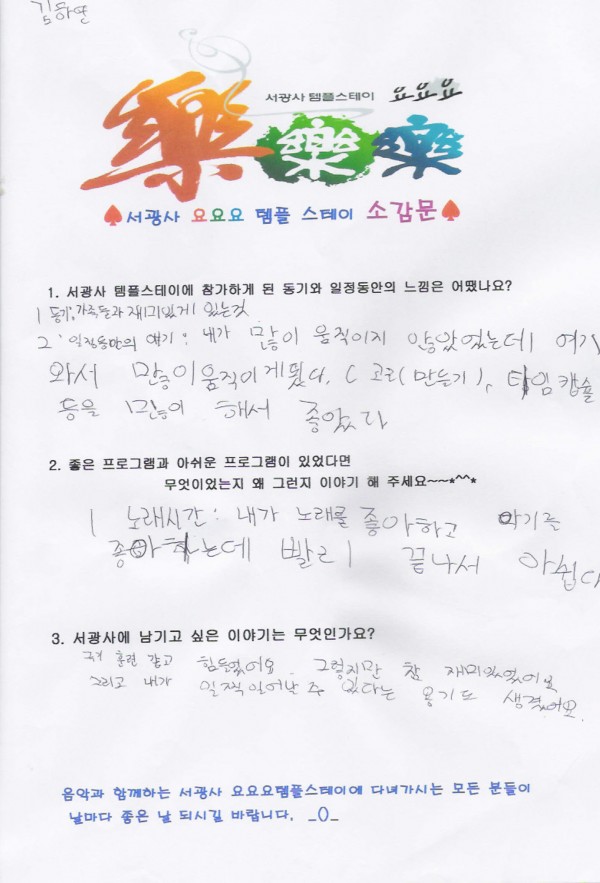 김하연
서광사 템플스테이 요요요
樂 樂 樂
♠서광사 요요요 템플 스테이 소감문♠
1. 서광사 템플스테이에 참가하게 된 동기와 일정동안의 느낌은 어땠나요?
1 동기: 가족들과 재미있게 있는것
2 일정동안의 얘기 : 내가 많이 움직이지 않았었는데 여기
와서 많이 움직이게됬다. ( 고리(만들기), 타임캡슐
등을 많이 해서 좋았다
2. 좋은 프로그램과 아쉬운 프로그램이 있었다면
무엇이었는지 왜 그런지 이야기 해 주세요~~*^^*
1 노래시간 : 내가 노래를 좋아하고 악기를
좋아하는데 빨리 끝나서 아쉽다
3. 서광사에 남기고 싶은 이야기는 무엇인가요?
훈련 같고 힘든었어요. 그렇지만 참 재미있었어요
그리고 내가 일찍일어날 수 있다는 용기도 생겼어요.
음악과 함께하는 서광사 요요요템플스테이에 다녀가시는 모든 분들이
날마다 좋은 날 되시길 바랍니다. _()_